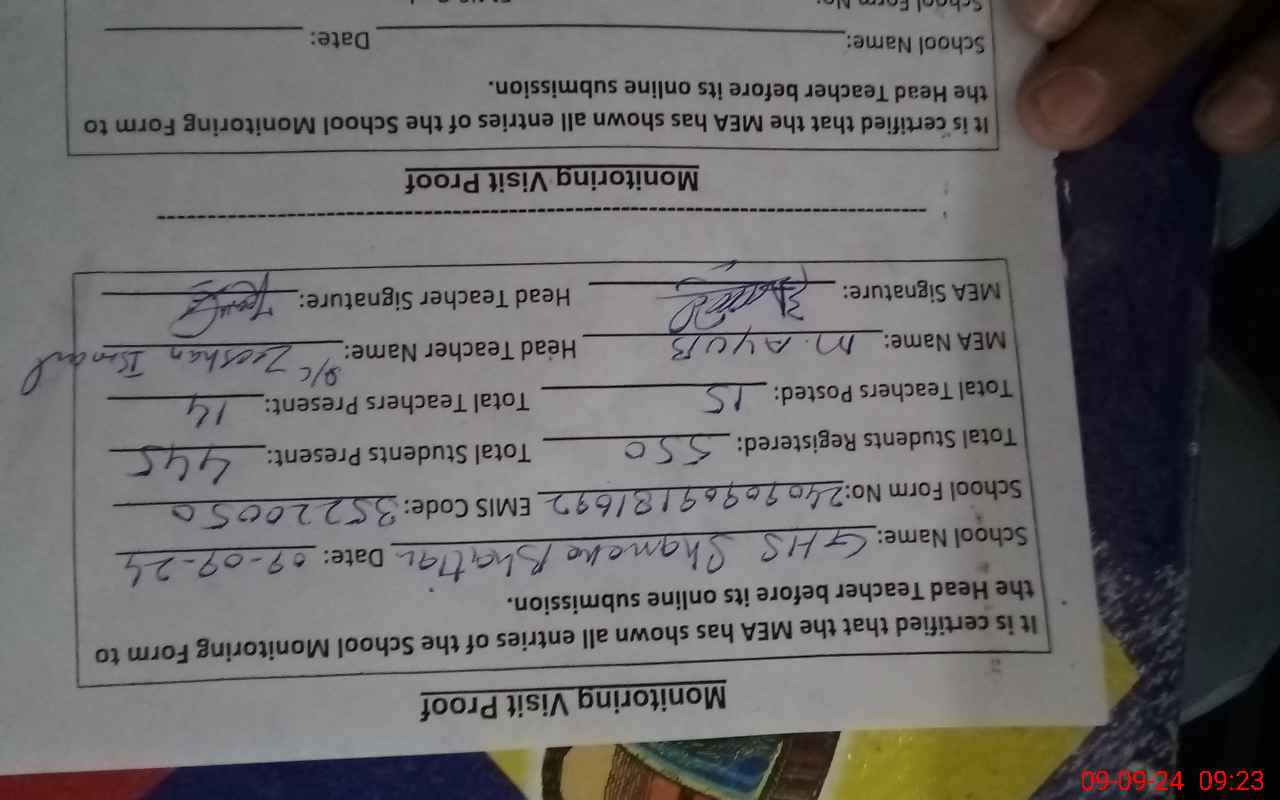 Monitoring Visit Proof
It is certified that the MEA has shown all entries of the School Monitoring Form to
the Head Teacher before its online submission.
School Name: GHS Shameke Bhattai Date: 09-09-24
School Form No: 24090909181692 EMIS Code: 35220050
Total Students Registered: 550 Total Students Present: 445
Total Teachers Posted: 15 Total Teachers Present: 14
MEA Name: M. AYUB Head Teacher Name: Zeeshan Ismail
MEA Signature: Head Teacher Signature:
Monitoring Visit Proof
It is certified that the MEA has shown all entries of the School Monitoring Form to
the Head Teacher before its online submission.
School Name: Date:
School Form No:
09-09-24 09:23